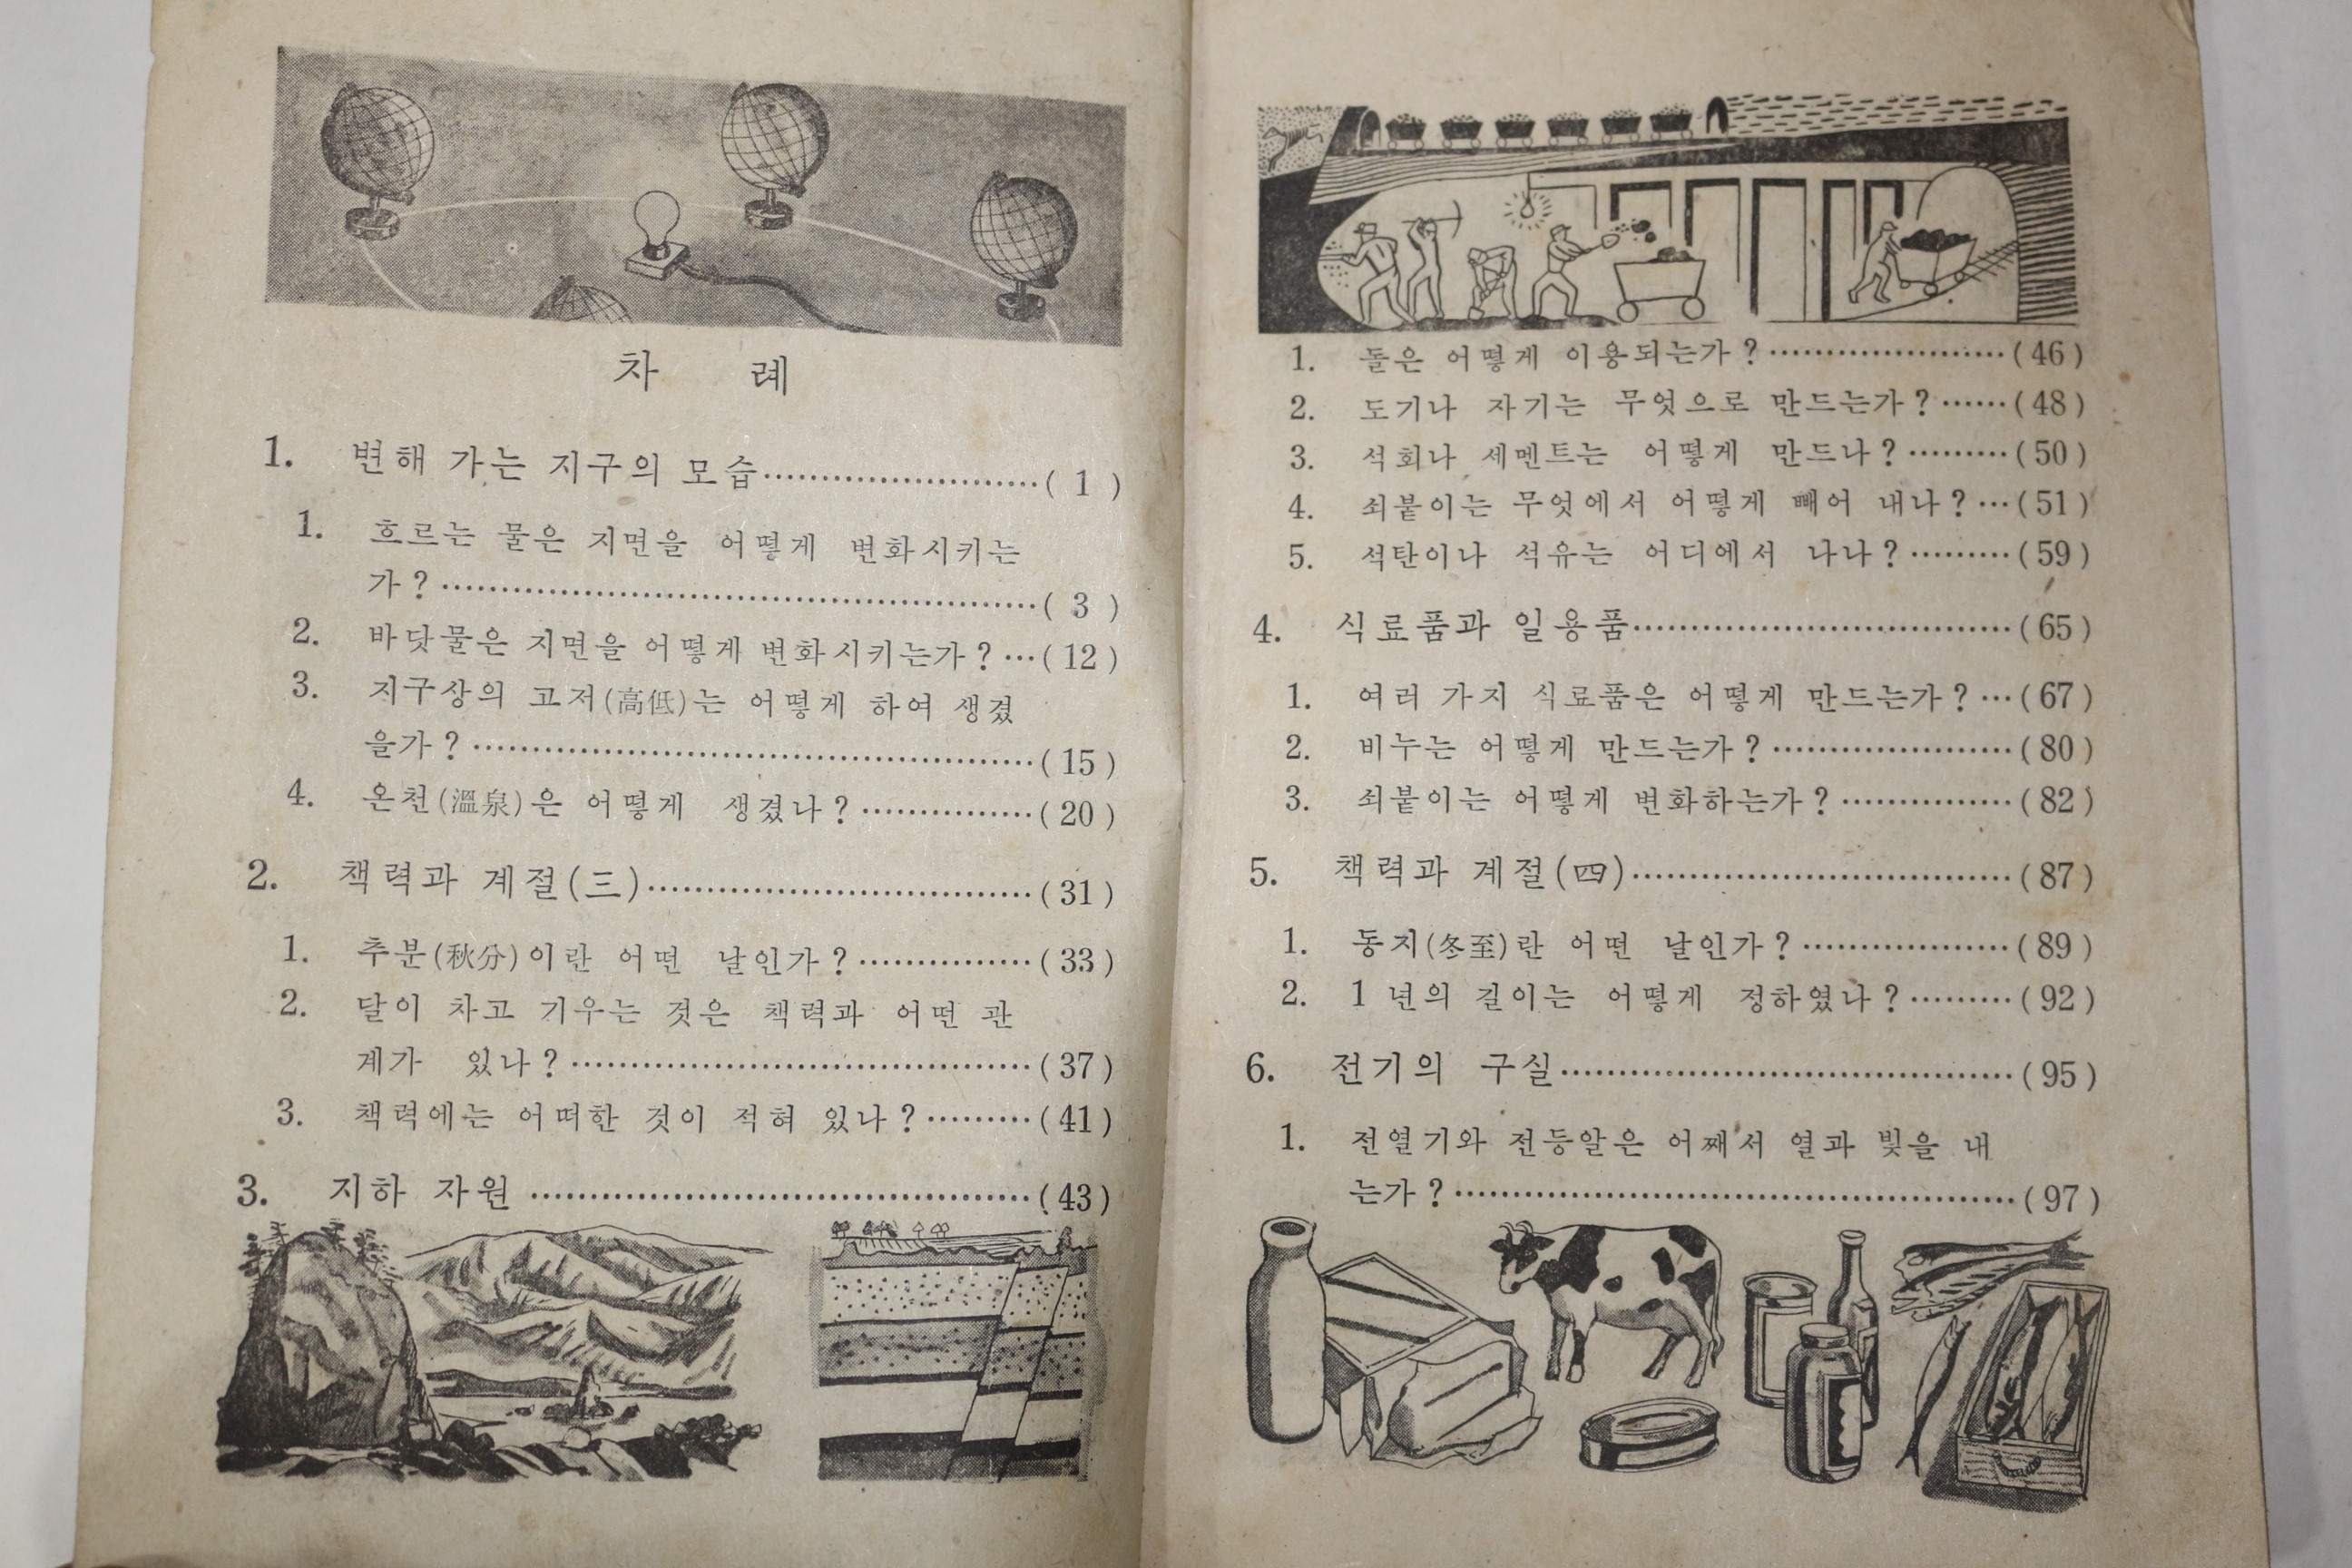 차 례
1. 변해 가는 지구의 모습………………………( 1 )
1. 흐르는 물은 지면을 어떻게 변화시키는
가?………………………………………………( 3 )
2. 바닷물은 지면을 어떻게 변화시키는가?…( 12 )
3. 지구상의 고저(高低)는 어떻게 하여 생겼
을가?……………………………………………( 15 )
4. 온천(溫泉)은 어떻게 생겼나?……………( 20 )
2. 책력과 계절(三)………………………………( 31 )
1. 추분(秋分)이란 어떤 날인가?……………( 33 )
2. 달이 차고 기우는 것은 책력과 어떤 관
계가 있나?……………………………………( 37 )
3. 책력에는 어떠한 것이 적혀 있나?………( 41 )
3. 지하 자원………………………………………( 43 )
1. 돌은 어떻게 이용되는가?…………………( 46 )
2. 도기나 자기는 무엇으로 만드는가?……( 48 )
3. 석회나 세멘트는 어떻게 만드나?………( 50 )
4. 쇠붙이는 무엇에서 어떻게 빼어 내나?…( 51 )
5. 석탄이나 석유는 어디에서 나나?………( 59 )
4. 식료품과 일용품………………………………( 65 )
1. 여러 가지 식료품은 어떻게 만드는가?…( 67 )
2. 비누는 어떻게 만드는가?…………………( 80 )
3. 쇠붙이는 어떻게 변화하는가?……………( 82 )
5. 책력과 계절(四)………………………………( 87 )
1. 동지(冬至)란 어떤 날인가?………………( 89 )
2. 1 년의 길이는 어떻게 정하였나?………( 92 )
6. 전기의 구실……………………………………( 95 )
1. 전열기와 전등알은 어째서 열과 빛을 내
는가?……………………………………………( 97 )